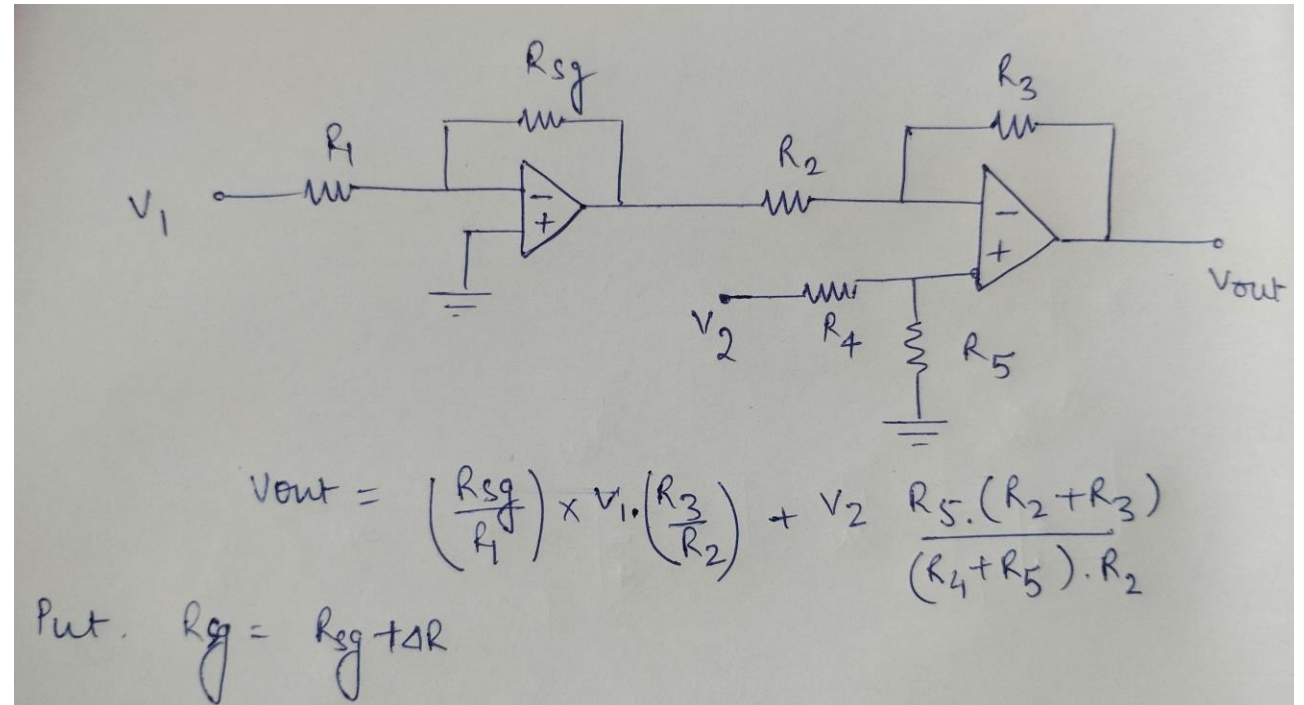 Rsg
R3
R1
R2
V1
−
+
−
+
Vout
V2
R4
R5
Vout = (Rsg/R1) × V1.(R3/R2) + V2 R5.(R2+R3)/(R4+R5).R2
Put. Rsg = Rsg+ΔR